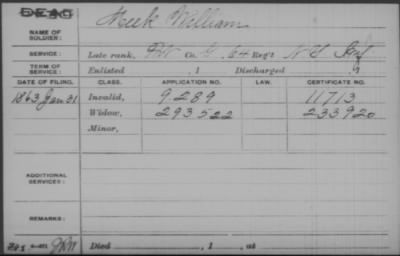 DEAD
Meek William
NAME OF
SOLDIER:
SERVICE:
Late rank, Co. 64 Reg't Inf
TERM OF
SERVICE:
Enlisted , 1 Discharged
DATE OF FILING. CLASS. APPLICATION NO. LAW. CERTIFICATE NO.
1863 Jan 31 Invalid, 9.289 11713
Widow, 293522 233920
Minor,
ADDITIONAL
SERVICES:
REMARKS:
Died , 1 , at